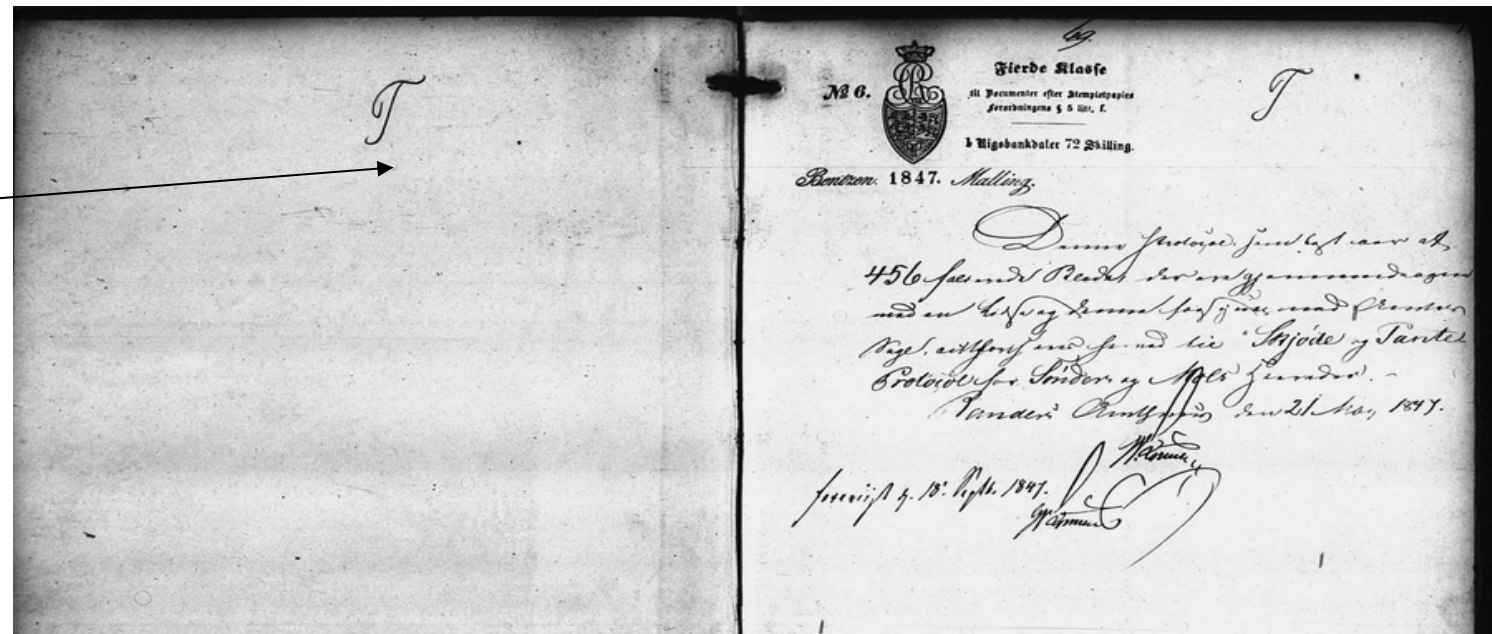 T
69.
№ 6.
Fierde Klasse
til Documenter efter Stempletpapirs
Forordningens § 5 litr. f.
1 Rigsbankdaler 72 Skilling.
T
Bentzen. 1847. Malling.
Denne Protocol, som bestaaer af
456 folierede Blade, der ere gjennemdragne
med en Lidse og denne forsynet med Amtets
Segl, authoriseres herved til Skjöde og Pante
Protocol for Sönder og Mols Herreder. -
Randers Amthuus den 21 May 1847.
foreviist d. 18. Septb. 1847.